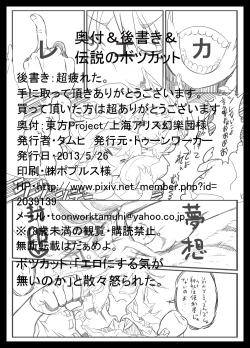 奥付＆後書き＆
伝説のボツカット
後書き：超疲れた。
手に取って頂きありがとうございます。
買って頂いた方は超ありがとうございます。
奥付：東方Project／上海アリス幻樂団様
発行者・タムヒ　発行元・トゥーンワーカー
発行日・2013/5/26
印刷・㈱ポプルス様
HP・http://www.pixiv.net/member.php?id=
2039139
メール・toonworktamuhi@yahoo.co.jp
※18歳未満の観覧・購読禁止。
無断転載はだぁめよ。
ボツカット・「エロにする気が
無いのか」と散々怒られた。
レ
カ
夢想
封